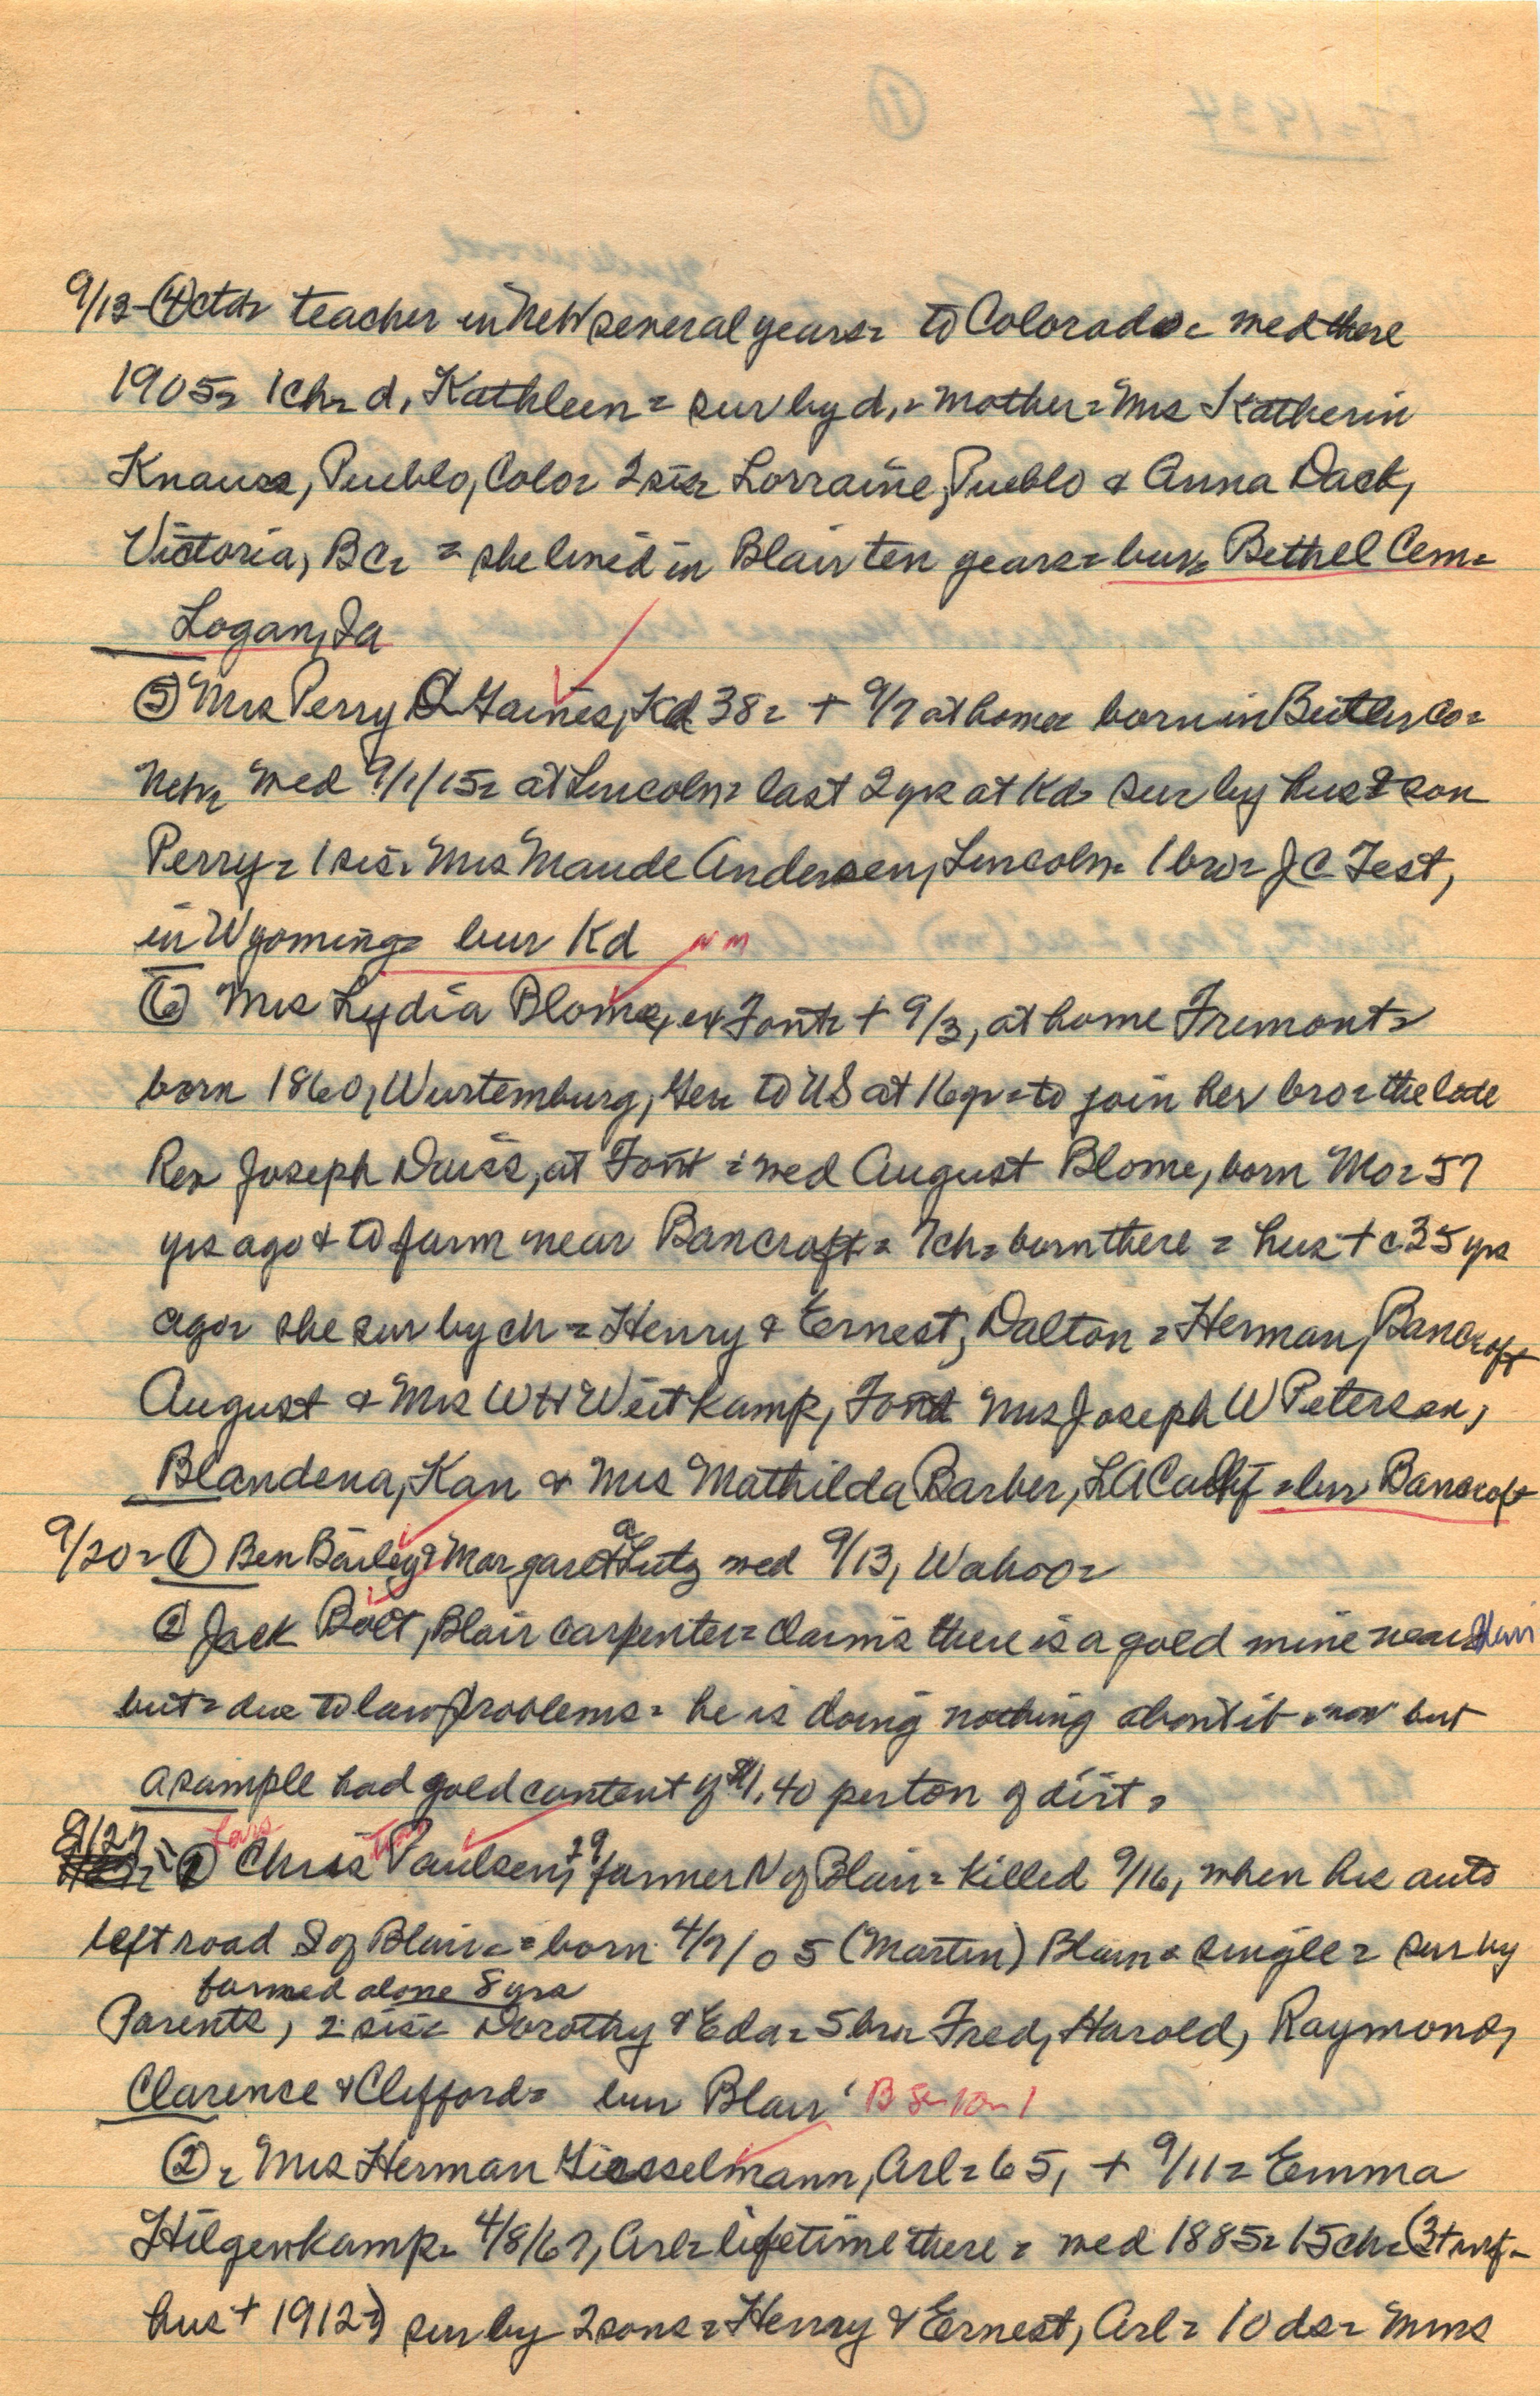 9/13 - (4) ctd = teacher in Neb several years = to Colorado = wed there
1905 = 1 ch = d, Kathleen = sur by d, = mother = Mrs Katherin
Knauss, Pueblo, Colo = 2 sis = Lorraine, Pueblo & Anna Dack,
Victoria, BC = = she lived in Blair ten years = bur = Bethel Cem =
Logan, Ia
(5) Mrs Perry Gaines, Kd 38 = + 9/7 at home born in Butler Co =
Neb = wed 9/1/15 = at Lincoln = last 2 yrs at Kd = sur by hus & son
Perry = 1 sis = Mrs Maude Andersen, Lincoln = 1 bro = J C Test,
in Wyoming = bur Kd
(6) Mrs Lydia Blome, ex Font = + 9/3, at home Fremont =
born 1860, Wurtemburg, Ger = to US at 16 yr = to join her bro = the late
Rev Joseph Daiss, at Font = wed August Blome, born Mo = 57
yrs ago & to farm near Bancroft = 7 ch = born there = hus + c 35 yrs
ago = she sur by ch = Henry & Ernest, Dalton = Herman, Bancroft
August & Mrs W H Weitkamp, Font Mrs Joseph W Peterson,
Blandena, Kan & Mrs Mathilda Barber, LA Calif = bur Bancroft
9/20 = (1) Ben Bailey & Margaret Lutz wed 9/13, Wahoo =
(2) Jack Bolt, Blair carpenter = claims there is a gold mine near Blair
but = due to law problems = he is doing nothing about it = now but
a sample had gold content of $1.40 per ton of dirt =
9/27 = (1) Lars Chris Paulsen, 29 farmer N of Blair = killed 9/16, when his auto
left road S of Blair = = born 4/7/05 (Martin) Blair = single = sur by
farmed alone 8 yrs
Parents, 2 sis = Dorothy & Eda = 5 bro = Fred, Harold, Raymond,
Clarence & Clifford = bur Blair B 5-10-1
(2) = Mrs Herman Giesselmann, Arl = 65, + 9/11 = Emma
Hilgenkamp = 4/8/67, Arl = lifetime there = wed 1885 = 15 ch = (3 + inf =
hus + 1912 =) sur by 2 sons = Henry & Ernest, Arl = 10 ds = Mms